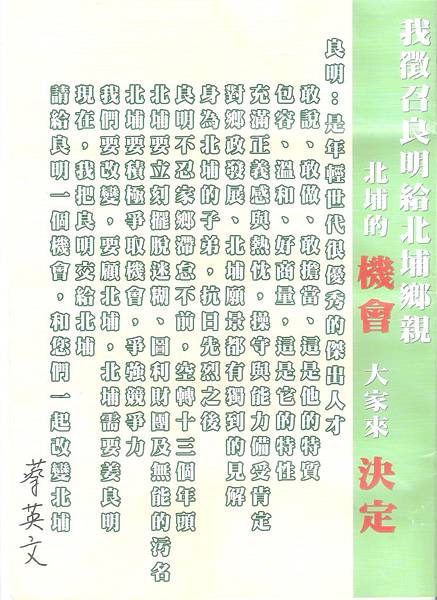 我徵召良明給北埔鄉親
北埔的 機會 大家來 決定
良明：是年輕世代很優秀的傑出人才
敢說、敢做、敢擔當、這是他的特質
包容、溫和、好商量，這是它的特性
充滿正義感與熱忱，操守與能力備受肯定
對鄉政發展、北埔願景都有獨到的見解
身為北埔的子弟，抗日先烈之後
良明不忍家鄉滯怠不前，空轉十三個年頭
北埔要立刻擺脫迷糊、圖利財團及無能的污名
北埔要積極爭取機會，爭強競爭力
我們要改變，要顧北埔，北埔需要姜良明
現在，我把良明交給北埔
請給良明一個機會，和您們一起改變北埔
蔡英文